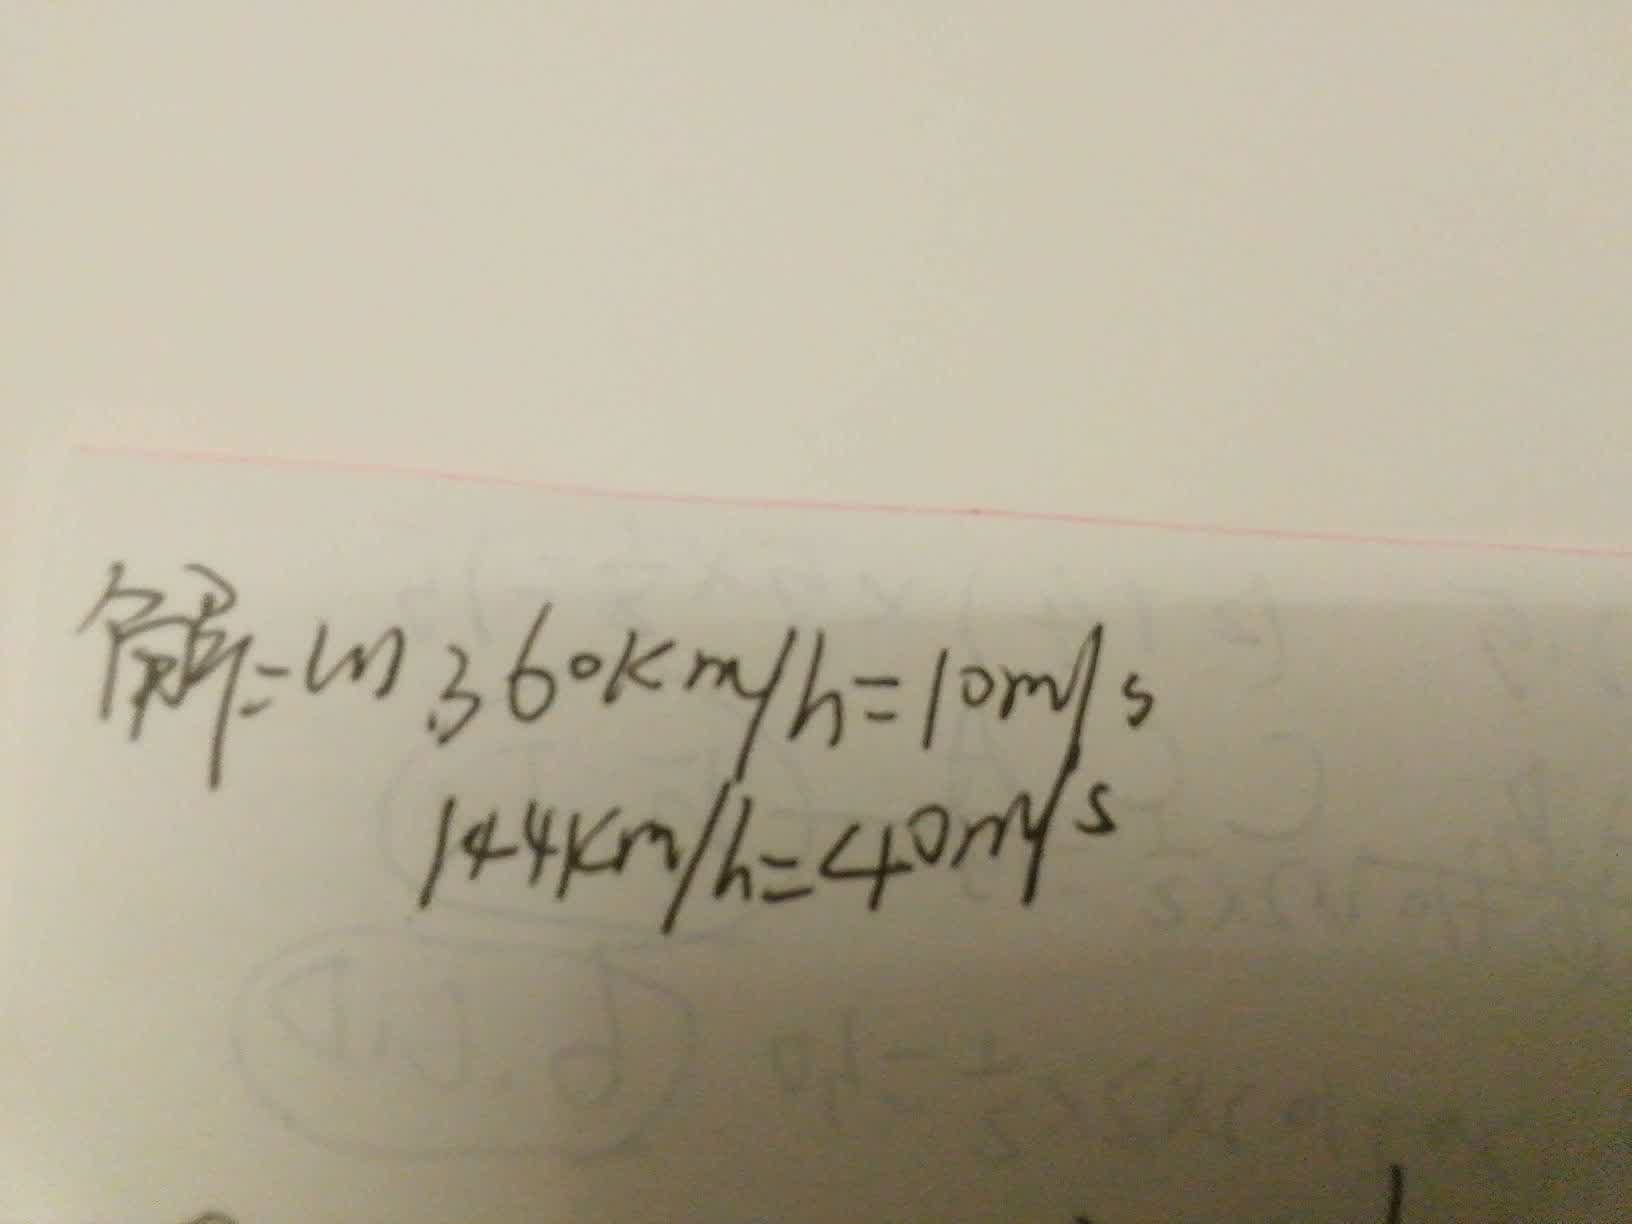 解:(1) 360km/h=10m/s
144km/h=40m/s